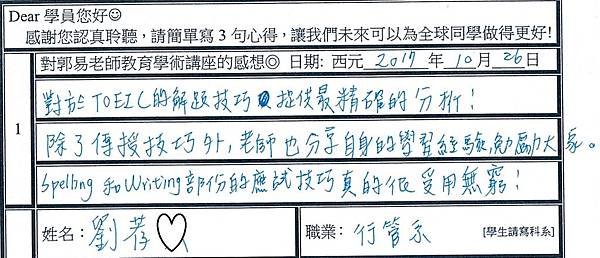 Dear 學員您好☺
感謝您認真聆聽，請簡單寫 3 句心得，讓我們未來可以為全球同學做得更好!
對郭易老師教育學術講座的感想◎ 日期: 西元 2017 年 10 月 26 日
1
對於TOEIC的解題技巧提供最精確的分析!
除了傳授技巧外,老師也分享自身的學習經驗,勉勵大家。
Spelling 和 Writing部份的應試技巧真的很受用無窮!
姓名: 劉荐♡
職業: 行管系 [學生請寫科系]